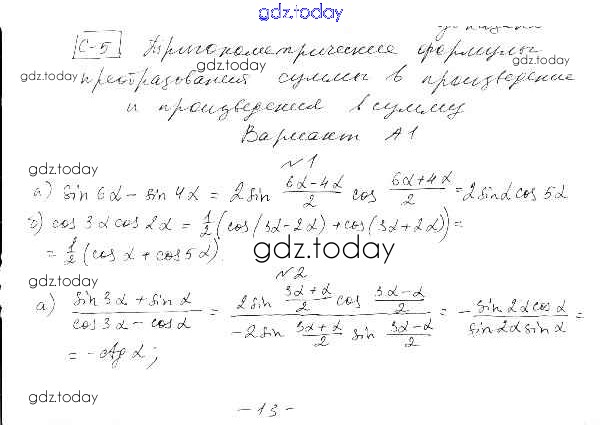 gdz.today
С-5 Тригонометрические формулы
gdz.today gdz.today
преобразования суммы в произведение
и произведения в сумму
Вариант А1
gdz.today gdz.today
№1
а) sin 6α − sin 4α = 2 sin (6α−4α)/2 cos (6α+4α)/2 = 2 sin α cos 5α
г) cos 3α cos 2α = 1/2 (cos(3α−2α) + cos(3α+2α)) =
= 1/2 (cos α + cos 5α).
gdz.today
gdz.today gdz.today
№2
а) (sin 3α + sin α)/(cos 3α − cos α) = (2 sin (3α+α)/2 cos (3α−α)/2)/(−2 sin (3α+α)/2 sin (3α−α)/2) = −(sin 2α cos α)/(sin 2α sin α) =
= −ctg α;
gdz.today gdz.today
- 13 -